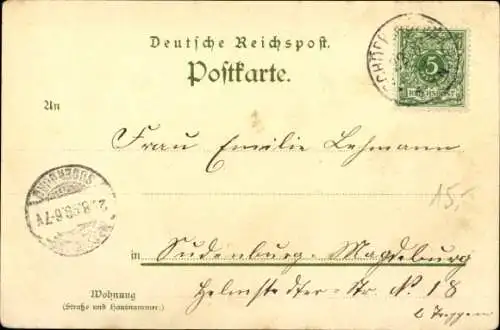 Deutsche Reichspost.
Postkarte.
5
REICHSPOST
An
Frau Emilie Lehmann
SUDENBURG
6-7V
15,-
in Sudenburg-Magdeburg
Wohnung
(Straße und Hausnummer.)
Helmstedter-Str. No 18
2 Treppen